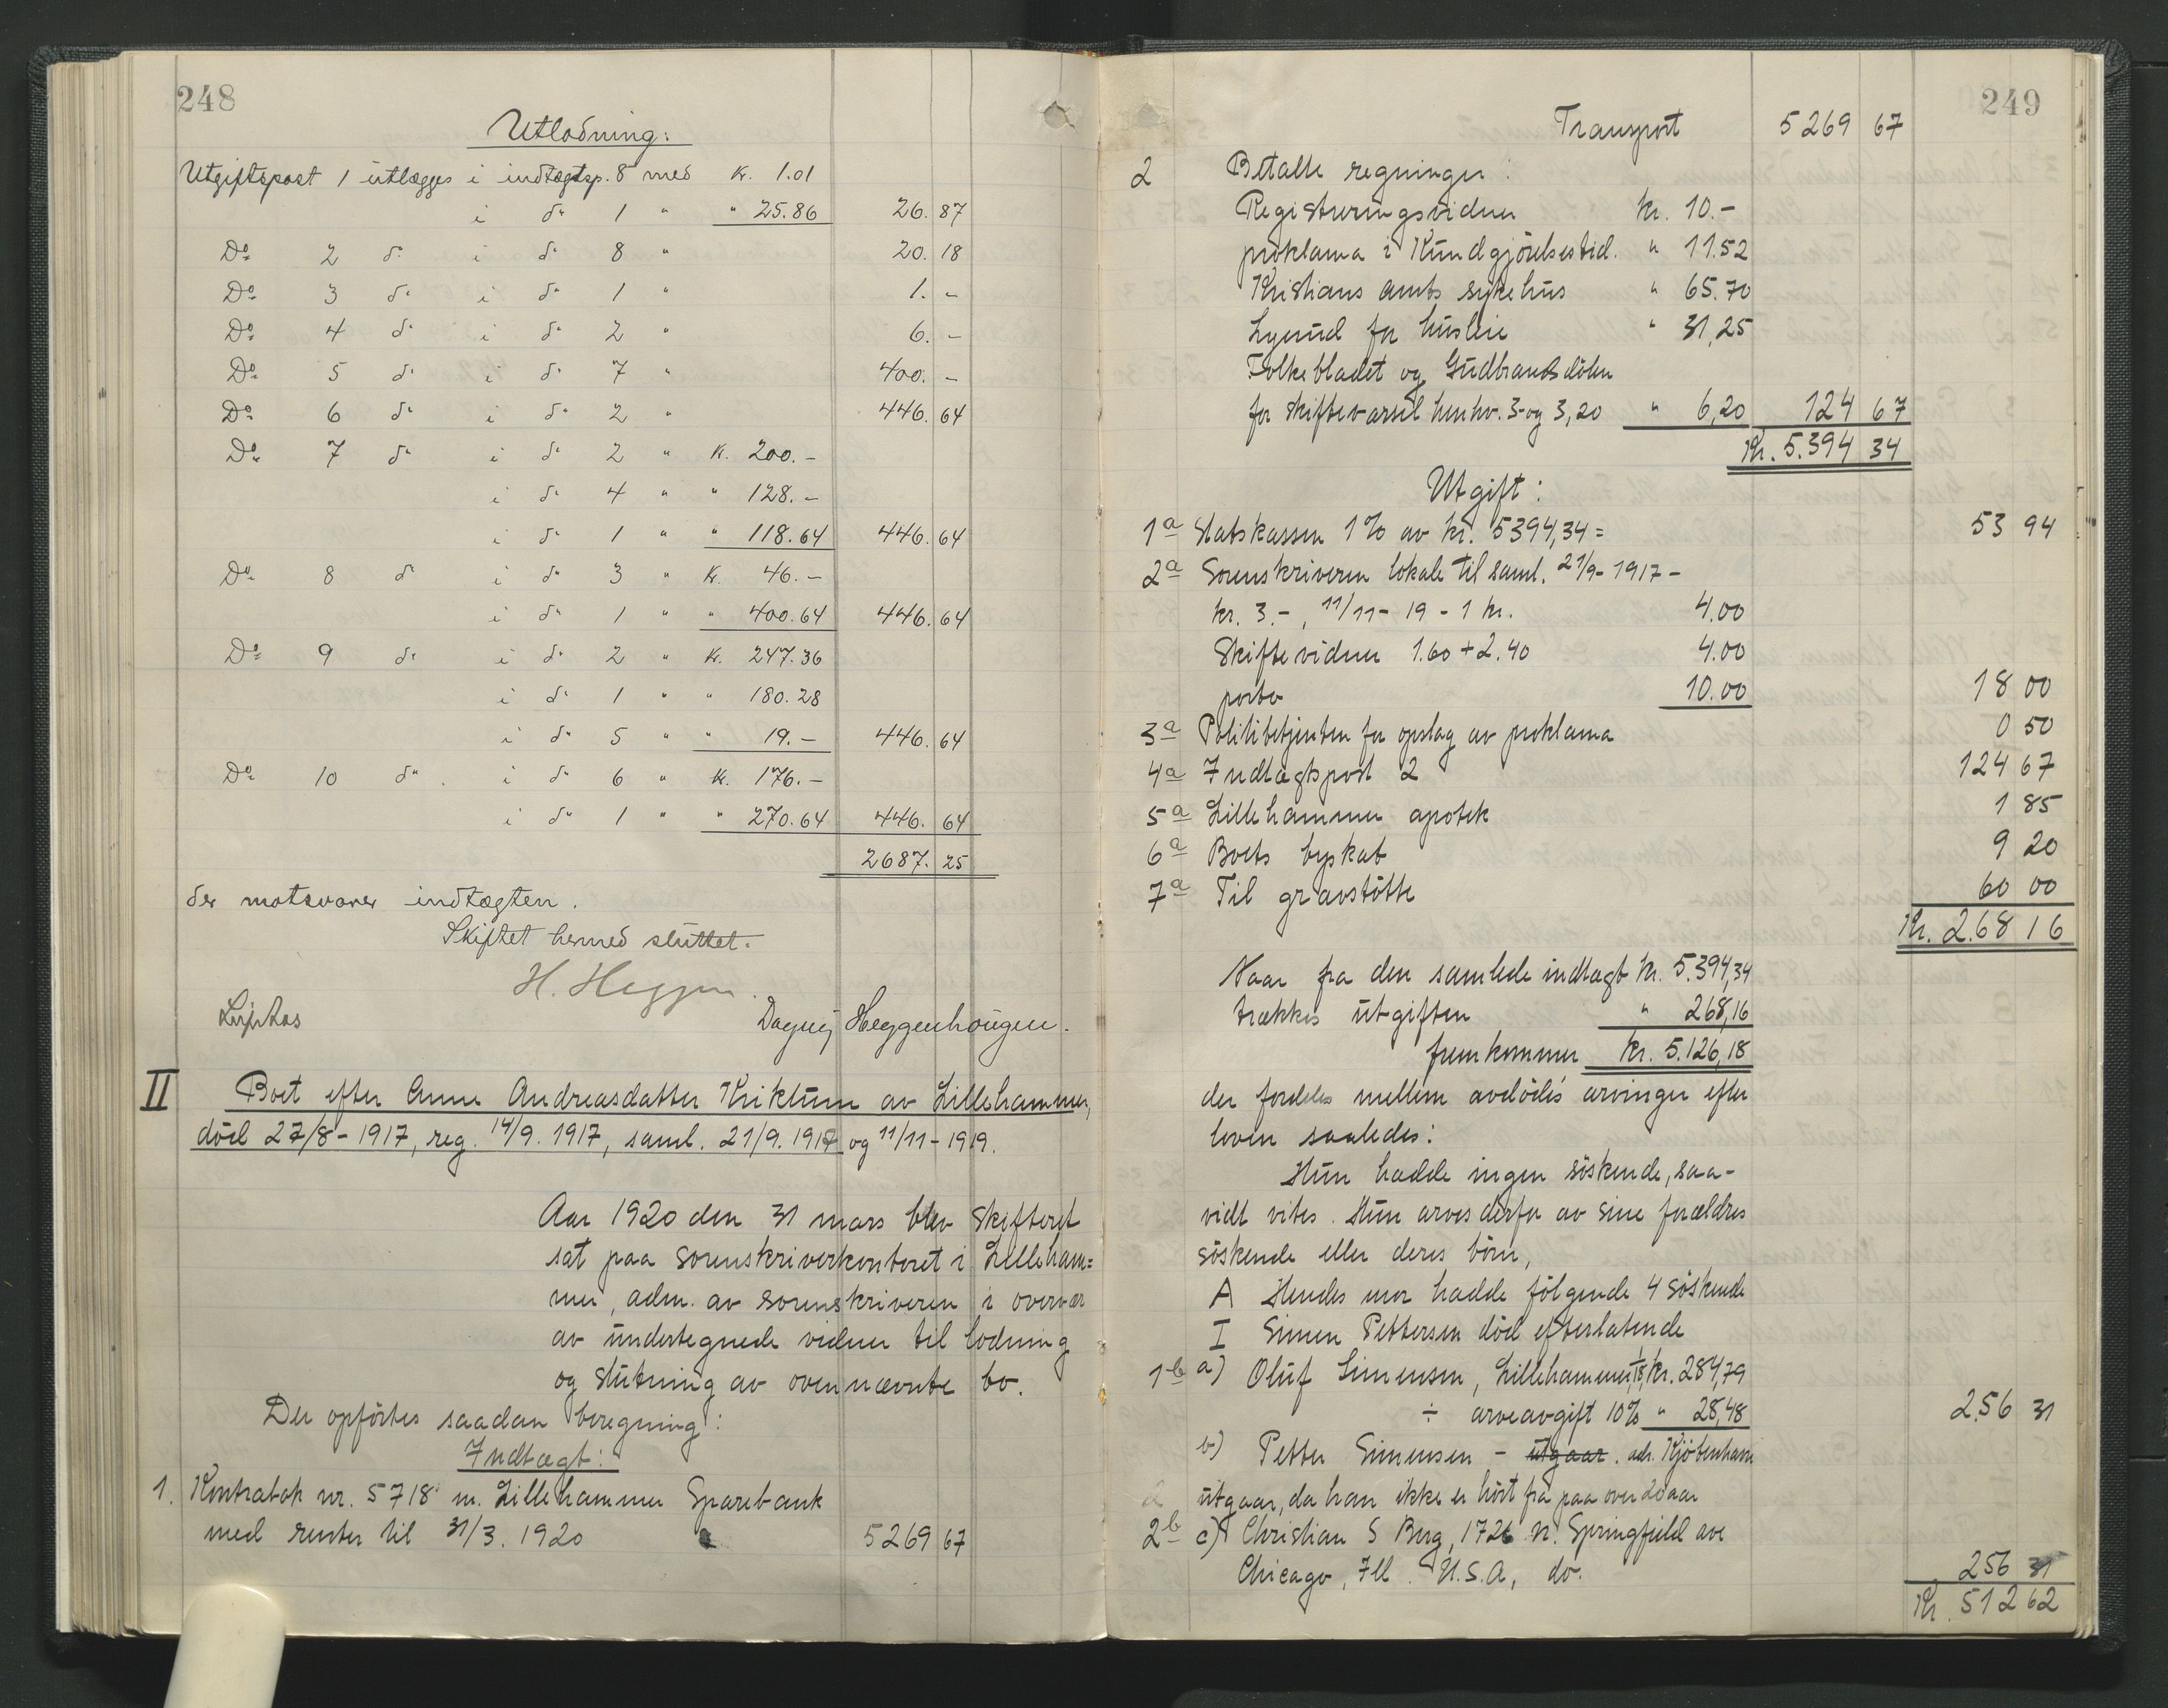 248
Utlodning:
Utgiftspost 1 utlægges i indtægtsp. 8 med kr. 1.01
i do 1 " " 25.86 26. 87
Do 2 do i do 8 " 20. 18
Do 3 do i do 1 " 1. -
Do 4 do i do 2 " 6. -
Do 5 do i do 7 " 400. -
Do 6 do i do 2 " 446. 64
Do 7 do i do 2 " kr. 200.-
i do 4 " " 128.-
i do 1 " " 118.64 446. 64
Do 8 do i do 3 " kr. 46.-
i do 1 " " 400.64 446. 64
Do 9 do i do 2 " kr. 247.36
i do 1 " " 180.28
i do 5 " " 19.- 446. 64
Do 10 do i do 6 " kr. 176.-
i do 1 " " 270.64 446. 64
2687. 25
der motsvarer indtægten.
Skiftet hermed sluttet.
H. Heggen.
Dagny Heggenhougen.
II Boet efter Anne Andreasdatter Kriklum av Lillehammer,
död 27/8-1917, reg. 14/9. 1917, saml. 21/9. 1917 og 11/11-1919.
Aar 1920 den 31 mars blev skifteret
sat paa sorenskriverkontoret i Lilleham=
mer, adm. av sorenskriveren i overvær
av undertegnede vidner til lodning
og slutning av ovennævnte bo.
Der opförtes saadan beregning:
Indtægt:
1. Kontrabok nr. 5718 m. Lillehammer Sparebank
med renter til 31/3. 1920 5269 67
249
Transport 5269 67
2 Betalte regninger:
Registreringsvidner kr. 10.-
proklama i Kundgjörelsestid. " 11.52
Kristians amts sykehus " 65.70
Lysgaard for husleie " 31,25
Folkebladet og Gudbrandsdölen
for skiftevarsel henhv. 3- og 3,20 " 6,20 124 67
Kr. 5.394 34
Utgift:
1a Statskassen 1% av kr. 5394,34 = 53 94
2a Sorenskriveren lokale til saml. 21/9-1917-
kr. 3.-, 11/11-19 - 1 kr. 4.00
Skiftevidner 1.60 + 2.40 4.00
porto 10.00 18 00
3a Politibetjenten for opslag av proklama 0 50
4a Indtægtspost 2 124 67
5a Lillehammer apotek 1 85
6a Boets byskat 9 20
7a Til gravstötte 60 00
Kr. 2.68 16
Naar fra den samlede indtægt kr. 5.394,34
trækkes utgiften " 268,16
fremkommer kr. 5.126,18
der fordeles mellem avdödes arvinger efter
loven saaledes:
Hun hadde ingen söskende, saa-
vidt vites. Hun arves derfor av sine forældres
söskende eller deres börn,
A Hendes mor hadde fölgende 4 söskende
I Simen Pettersen död efterlatende
1b a) Oluf Simensen, Lillehammer, 1/18, kr. 284,79
÷ arveavgift 10% " 28,48 2.56 31
b) Petter Simensen - utgaar. adr. Kjöbenhavn
utgaar, da han ikke er hört fra paa over 20 aar
2b c) Christian S Berg, 1726 N. Springfield ave
Chicago, Ill. U.S.A, do. 256 31
Kr. 512 62